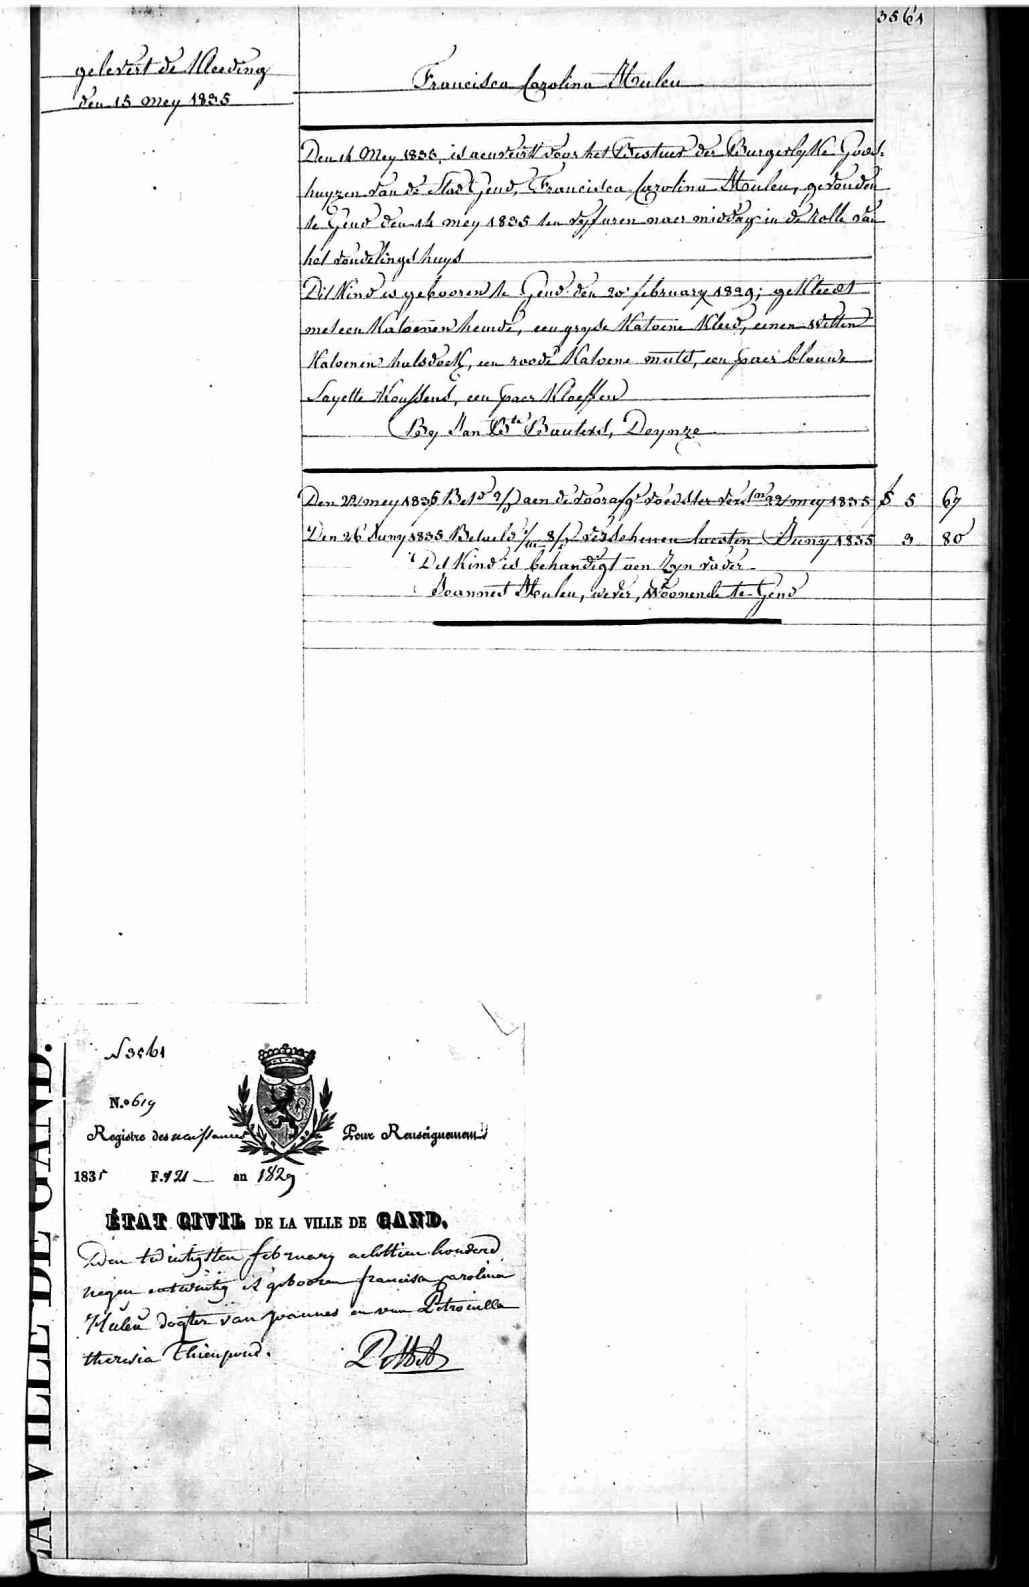 3561
gelevert de Kleeding
den 15 mey 1835
Francisca Carolina Huleu
Den 14 Mey 1835, is aenveirt door het Bestuer der Burgerlyke Gods-
huyzen van de Stad Gend, Francisca Carolina Huleu, gevonden
te Gend den 14 mey 1835 ten vyf uren naer middag in de rolle van
het vondelings huys
Dit Kind is gebooren te Gend den 20 february 1829; gekleedt
met een Katoenen hemde, een gryse Katoene Kleed, eenen witten
Katoenen halsdoek, een roode Katoene muts, een paer blauwe
Sayette Koussens, een paer Kloeffen
By Jan Bte Bauters, Deynze
Den 22 mey 1835 Bet aen de voorafge voedster 22 mey 1835 5 67
Den 26 Juny 1835 Betaeld verschenen laesten Juny 1835 3 80
Dit Kind is behandigt aen Zyn vader
Joannes Huleu, wever, woonende te Gend
N 3561
N.o 619
Registre des naissances Pour Renseignemens
1835 F. 121 an 1829
ÉTAT CIVIL DE LA VILLE DE GAND.
Den twintigsten february achttien honderd
negen en twintig is gebooren francisca carolina
Huleu dogter van joannes en van Petronella
theresia Thienpond.
LA VILLE DE GAND.